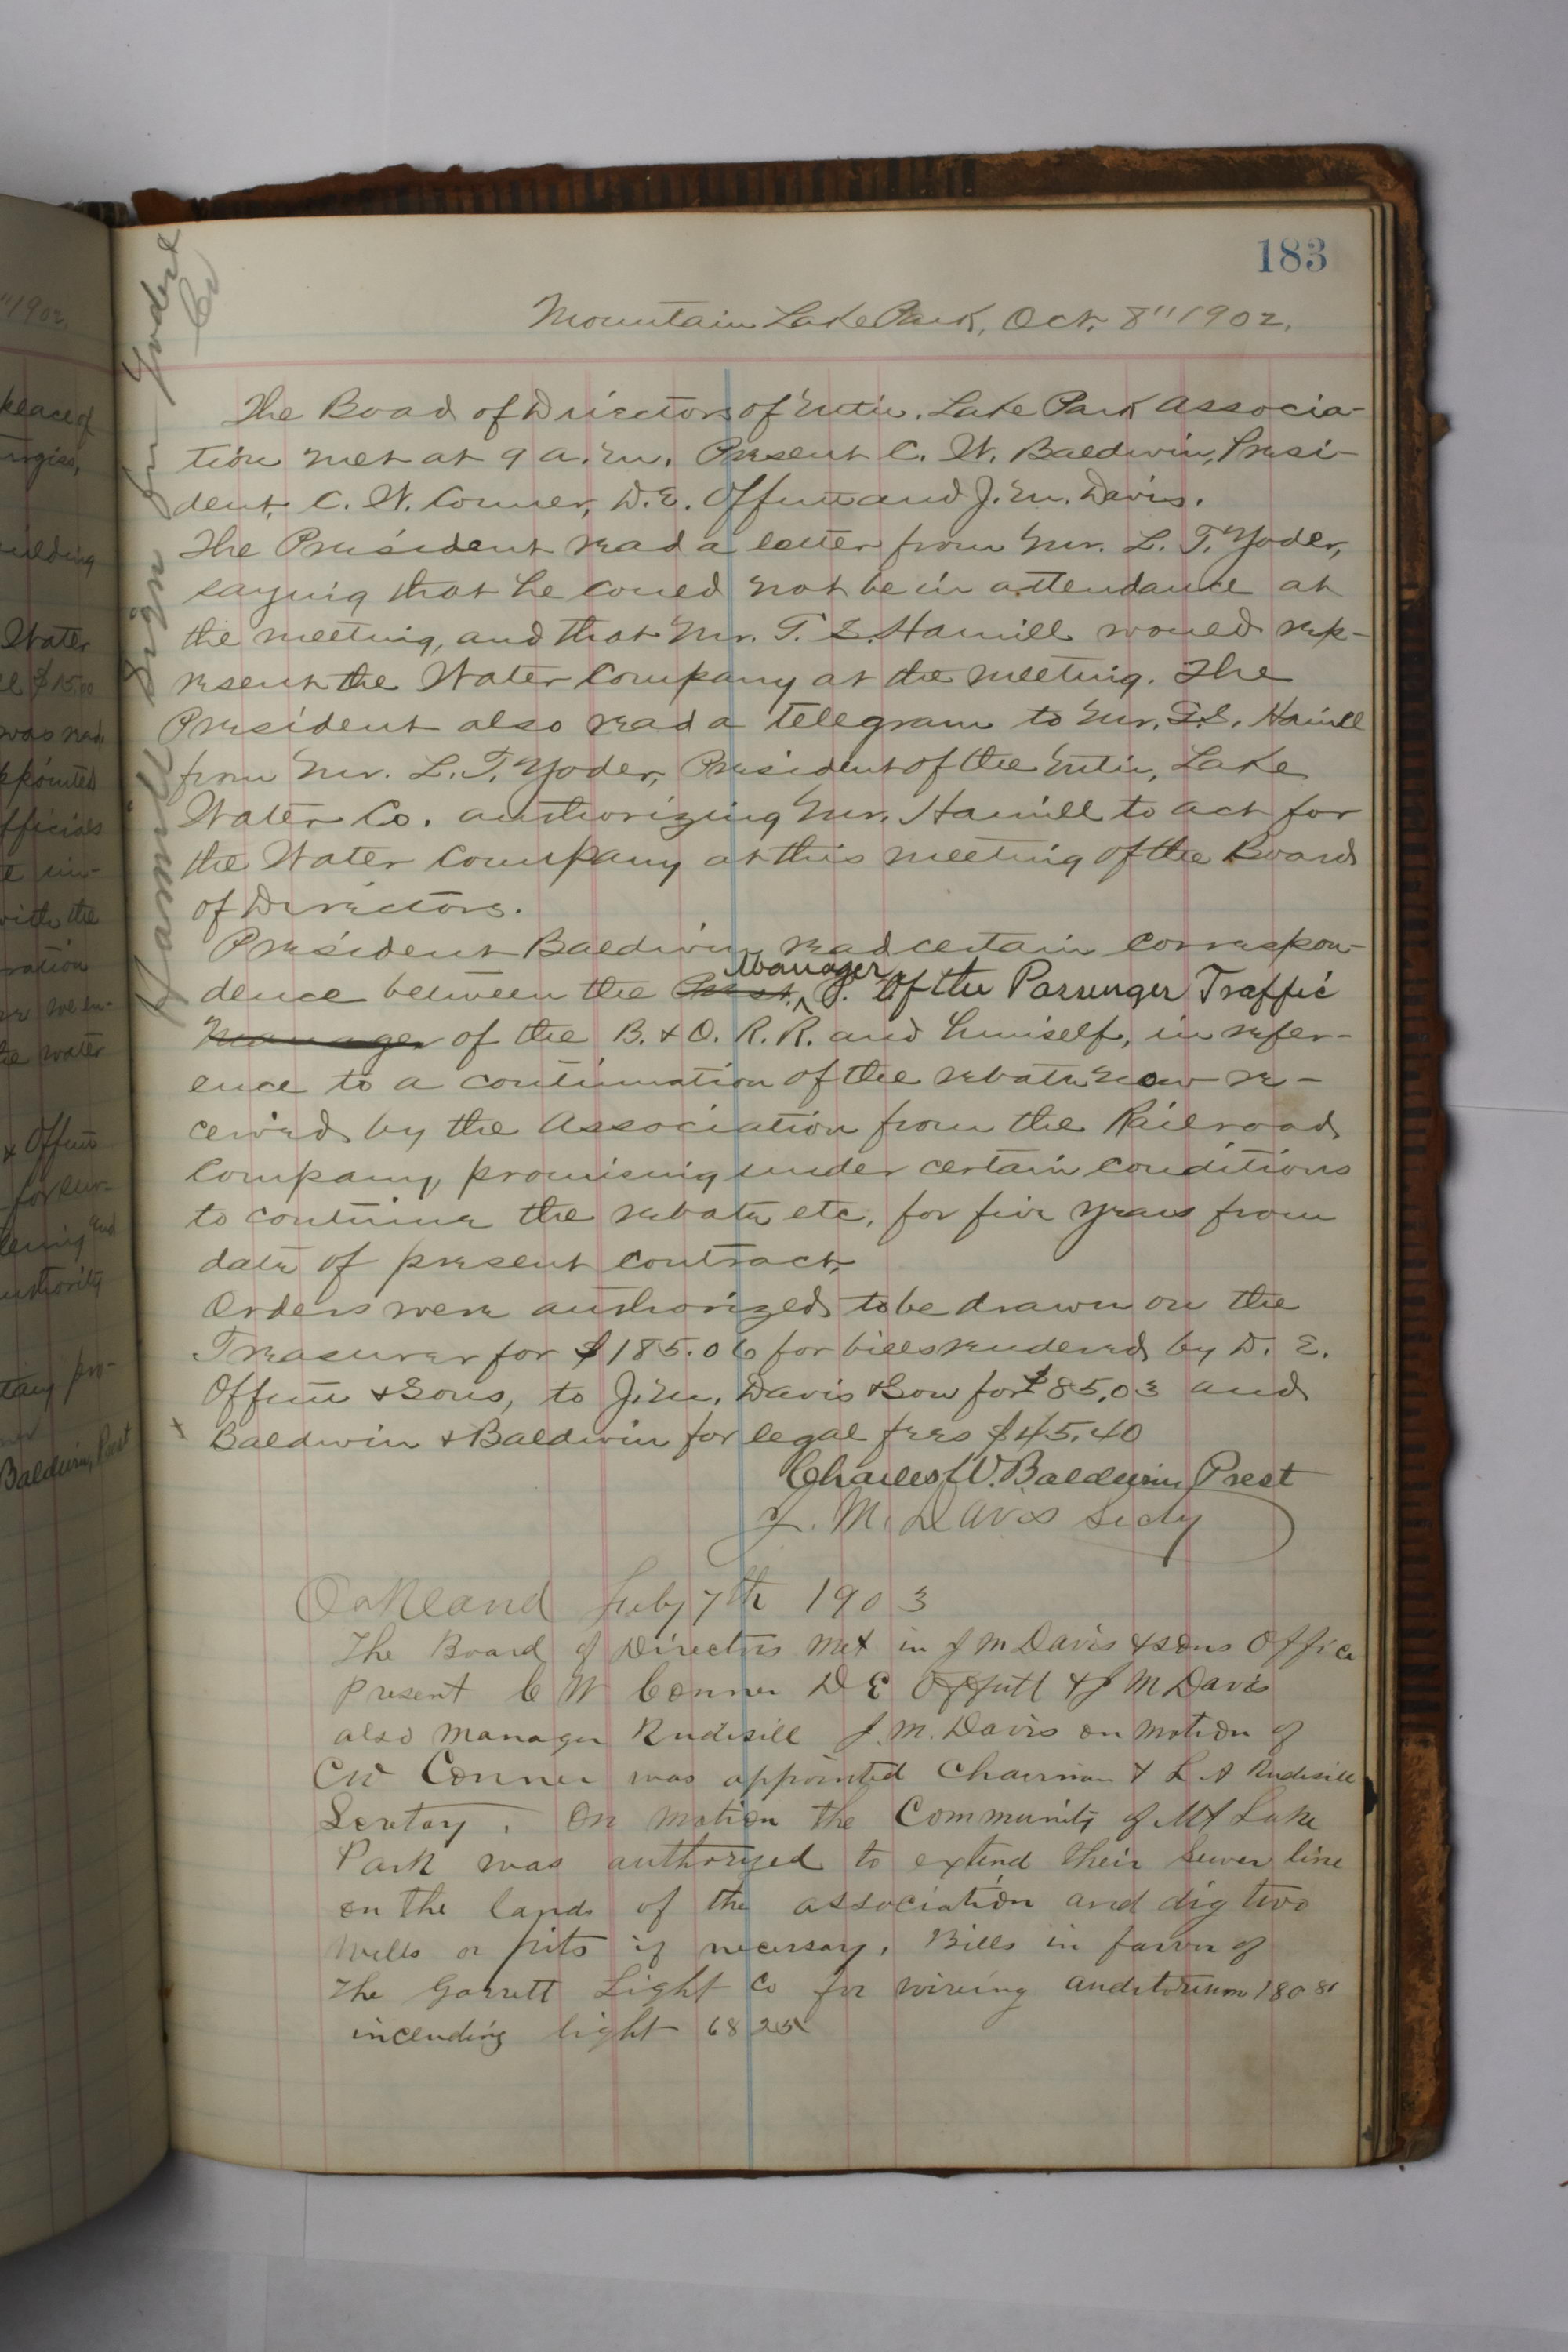 183
Mountain Lake Park, Oct. 8" 1902.
The Boad of Directors of Mtn. Lake Park Associa-
tion met at 9 a.m. Present C. W. Baldwin, Presi-
dent, C. W. Conner, D. E. Offutt and J. M. Davis.
The President read a letter from Mr. L. T. Yoder,
saying that he could not be in attendance at
the meeting, and that Mr. T. S. Hamill would rep-
resent the Water Company at the meeting. The
President also read a telegram to Mr. T. S. Hamill
from Mr. L. T. Yoder, President of the Mtn. Lake
Water Co. authorizing Mr. Hamill to act for
the Water Company at this meeting of the Board
of Directors.
President Baldwin read certain correspon-
Manager
dence between the Prest. of the Passenger Traffic
Manager of the B. & O. R. R. and himself, in refer-
ence to a continuation of the rebate now re-
ceived by the Association from the Railroad
Company, promising under certain conditions
to continue the rebate etc. for five years from
date of present contract.
Orders were authorized to be drawn on the
Treasurer for $185.06 for bills rendered by D. E.
Offutt & Sons, to J. M. Davis & Son for $85.03 and
x Baldwin & Baldwin for legal fees $45.40
Charles W. Baldwin, Prest
J. M. Davis Secty
Oakland Feby 7th 1903
The Board of Directors met in J M Davis & sons Office
present C W Conner D E Offutt & J M Davis
also Manager Rudisill J. M. Davis on motion of
CW Conner was appointed Chairman & L A Rudisill
Scretary. On motion the Community of Mt Lake
Park was authorized to extend their Sewer line
on the lands of the association and dig two
wells or pits if necessary. Bills in favor of
The Garrett Light Co for wireing auditorium 180 81
including light 68 25